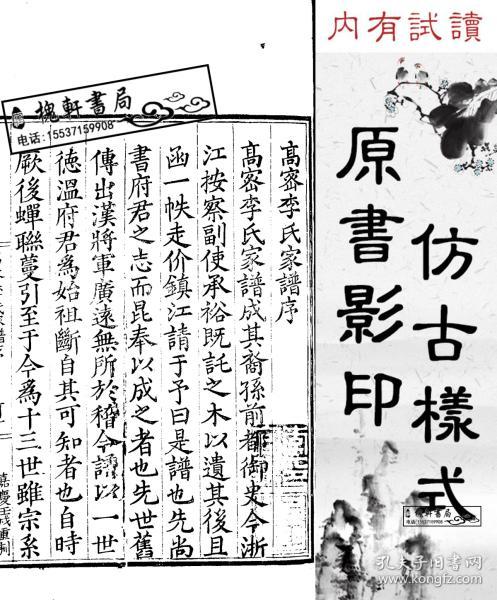 内有試讀
原書影印
仿古樣式
槐軒書局
电话:15537159908
高密李氏家譜序
高密李氏家譜成其裔孫前都御史今浙
江按察副使承裕既託之木以遺其後且
函一帙走价鎮江請于予曰是譜也先尚
書府君之志而昆奉以成之者也先世舊
傳出漢將軍廣遠無所於稽今譜以一世
徳溫府君爲始祖斷自其可知者也自時
厥後蟬聯蔓引至于今爲十三世雖宗系
槐軒書局
电话:15537159908
孔夫子旧书网
www.kongfz.com